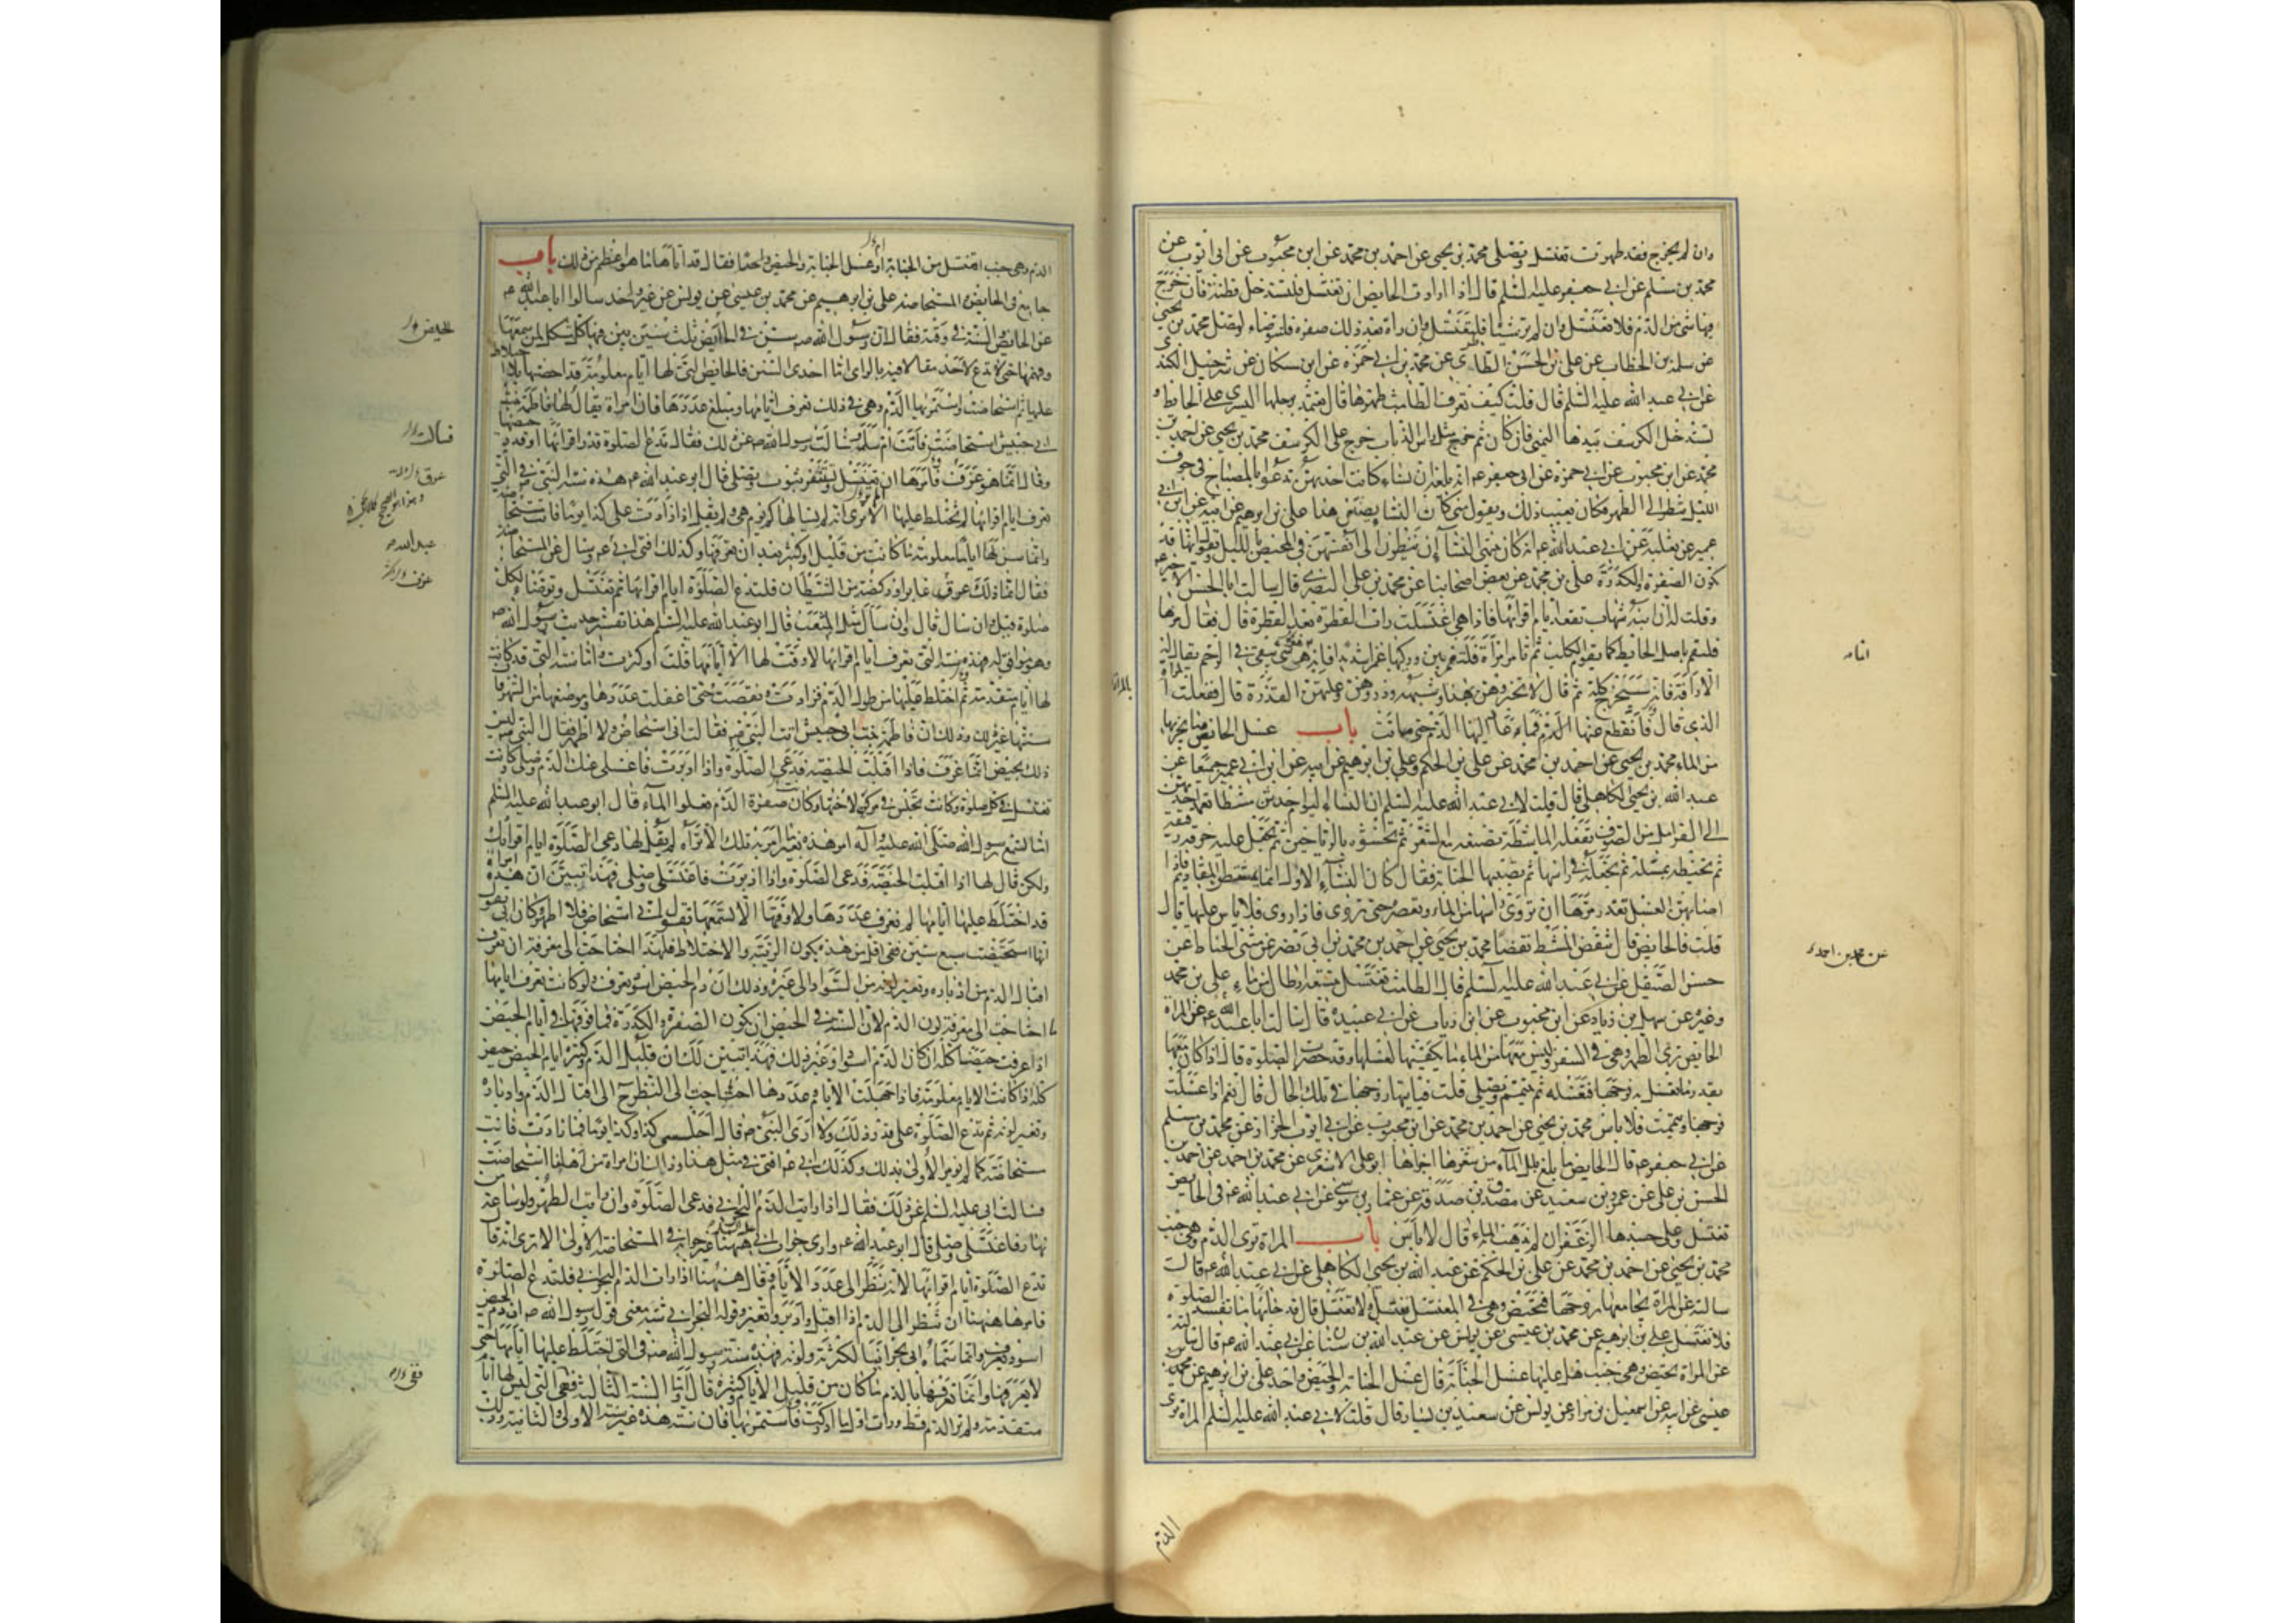 وان لم يخرج فقد طهرت تغتسل وتصلى محمد بن يحيى عن احمد بن محمد عن ابن محبوب عن ابى ايوب عن
محمد بن مسلم عن ابي جعفر عليه السلم قال اذا ارادت الحايض ان تغتسل فلتستدخل قطنة فان خرج
فيها شئ من الدم فلا تغتسل وان لم تر شيئا فلتغتسل وان رات بعد ذلك صفرة فلتتوضاء ولتصل محمد بن يحيى
عن سلمة بن الخطاب عن على بن الحسن الطاطرى عن محمد بن ابي حمزه عن ابن مسكان عن شرحبيل الكندى
عن ابي عبد الله عليه السلم قال قلت كيف تعرف الطامث طهرها قال تعتمد برجلها اليسرى على الحايط و
تستدخل الكرسف بيدها اليمنى فان كان ثم خرج مثل راس الذباب خرج على الكرسف محمد بن يحيى عن احمد بن
محمد عن ابن محبوب عن ابي حمزة عن ابى جعفر عه انه بلغه ان نساء كانت احديهن تدعوا بالمصباح فى جوف
الليل تنظر الى الطهر فكان يعيب ذلك ويقول متى كان النساء يصنعن هذا على بن ابرهيم عن ابيه عن ابن ابي
عمير عن ثعلبة عن ابي عبد الله عه انه كان ينهى النساء ان ينظرن الى انفسهن فى المحيض بالليل ويقول انها قد
تكون الصفرة والكدرة على بن محمد عن بعض اصحابنا عن محمد بن علي البصرى قال سالت ابا الحسن الاخير عه
وقلت له ان ابنة شهاب تقعد ايام اقرائها فاذا هى اغتسلت رات القطرة بعد القطرة قال فقال مرها
فلتقم باصل الحايط كما يقوم الكلب ثم تامر امراة فلتغمز بين وركيها غمزا شديدا فانه انما هو شئ يبقى فى الرحم يقال له
الاراقة فانه سيخرج كله ثم قال لا تخبروهن بهذا وشبهه وذروهن وعلتهن القذرة قال ففعلت المراة
الذى قال فانقطع عنها الدم فما عاد اليها الدم حتى ماتت باب غسل الحايض وما يجزيها
من الماء محمد بن يحيى عن احمد بن محمد عن على بن الحكم وعلي بن ابرهيم عن ابيه عن ابن ابي عمير جميعا عن
عبد الله بن يحيى الكاهلى قال قلت لابي عبد الله عليه السلم ان النساء اليوم احدثن مشطا تعمد احديهن
الى القرامل من الصوف تفعله الماشطة تصنعه مع الشعر ثم تحشوه بالرياحين ثم تجعل عليه خرقة رقيقة
ثم تخيطه بمسلة ثم تجعله فى راسها ثم تصيبها الجنابة فقال كان النساء الاول انما يمتشطن المقاديم فاذا
اصابهن الغسل تغدر مرها ان تروى راسها من الماء وتعصره حتى يروى فاذا روى فلا باس عليها قال
قلت فالحايض قال تنقض المشط نقضا محمد بن يحيى عن احمد بن محمد بن ابى نصر عن مثنى الحناط عن
حسن الصيقل عن ابي عبد الله عليه السلم قال الطامث تغتسل بتسعة ارطال من ماء على بن محمد
وغيره عن سهل بن زياد عن ابن محبوب عن ابن رياب عن ابي عبيدة قال سالت ابا عبد الله عه عن المراة
الحايض ترى الطهر وهى فى السفر وليس معها من الماء ما يكفيها لغسلها وقد حضرت الصلوة قال اذا كان معها
بقدر ما تغسل به فرجها فتغسله ثم تتيمم وتصلى قلت فياتيها زوجها فى تلك الحال قال نعم اذا غسلت
فرجها وتيممت فلا باس محمد بن يحيى عن احمد بن محمد عن ابن محبوب عن ابي ايوب الخزاز عن محمد بن مسلم
عن ابي جعفر عه قال الحايض ما بلغ بلل الماء من شعرها اجزاها ابو على الاشعرى عن محمد بن احمد عن احمد بن
الحسن بن على عن عمرو بن سعيد عن مصدق بن صدقة عن عمار بن موسى عن ابي عبد الله عه فى الحايض
تغتسل وعلى جسدها الزعفران لم يذهب به الماء قال لا باس باب المراة ترى الدم وهى جنب
محمد بن يحيى عن احمد بن محمد عن على بن الحكم عن عبد الله بن يحيى الكاهلى عن ابي عبد الله عه قال
سالته عن المراة يجامعها زوجها فتحيض وهى فى المغتسل تغتسل او لا تغتسل قال قد جاءها ما يفسد الصلوة
فلا تغتسل على بن ابرهيم عن محمد بن عيسى عن يونس عن عبد الله بن سنان عن ابي عبد الله عه قال سالته
عن المراة تحيض وهى جنب هل عليها غسل الجنابة قال غسل الجنابة والحيض واحد على بن ابرهيم عن محمد بن
عيسى عن ابيه عن اسمعيل بن مرار عن يونس عن سعيد بن يسار قال قلت لابي عبد الله عليه السلم المراة ترى
الدم
اتاه
عن محمد بن احمد
الدم وهى جنب اتغتسل من الجنابة او غسل الجنابة والحيض واحدا فقال قد اتاها ما هو اعظم من ذلك باب
جامع فى الحايض والمستحاضه على بن ابرهيم عن محمد بن عيسى عن يونس عن غير واحد سالوا ابا عبد الله عه
عن الحايض والسنة فى وقته فقال ان رسول الله صه سن فى الحايض ثلث سنن بين فيها كل مشكل لمن سمعها
وفهمها حتى لا تدع لاحد مقالا فيه بالراى اما احدى السنن فالحايض التى لها ايام معلومة قد احصتها بلا اختلاط
عليها ثم استحاضت واستمر بها الدم وهى فى ذلك تعرف ايامها ومبلغ عددها فان امراة يقال لها فاطمة بنت
ابي حبيش استحاضت فاتت ام سلمة فسالت رسول الله صه عن ذلك فقال تدع الصلوة قدر اقرائها او قدر حيضها
وقال انما هو عزف فامرها ان تغتسل وتستثفر بثوب وتصلى قال ابو عبد الله عه هذه سنة النبى صه فى التى
تعرف ايام اقرائها لم تختلط عليها الا ترى انه لم يسالها كم يوم هى ولم يقل اذا زادت على كذا يوما فانت مستحاضة
وانما سن لها اياما معلومة ما كانت من قليل او كثير بعد ان تعرفها وكذلك افتى ابي عه وسئل عن المستحاضة
فقال انما ذلك عرق عابر او ركضة من الشيطان فلتدع الصلوة ايام اقرائها ثم تغتسل وتوضاء لكل
صلوة قيل وان سال قال وان سال مثل المثعب قال ابو عبد الله عليه السلم هذا تفسير حديث رسول الله صه
وهو موافق له فهذه سنة التى تعرف ايام اقرائها لا وقت لها الا ايامها قلت او كثرت واما سنة التى قد كانت
لها ايام متقدمة ثم اختلط عليها من طول الدم فزادت ونقصت حتى اغفلت عددها وموضعها من الشهر فان
سنتها غير ذلك وذلك ان فاطمة بنت ابى حبيش اتت النبى صه فقالت انى استحاض ولا اطهر فقال النبى صه ليس
ذلك بحيض انما عزف فاذا اقبلت الحيضه فدعي الصلوة واذا ادبرت فاغسلى عنك الدم وصلى وكانت
تغتسل فى كل صلوة وكانت تجلس فى مركن لاختها وكانت صفرة الدم تعلوا الماء قال ابو عبد الله عليه السلم
اما تسمع رسول الله صلى الله عليه واله امر هذه بغير ما امر به تلك الا تراه لم يقل لها دعى الصلوة ايام اقرائك
ولكن قال لها اذا اقبلت الحيضة فدعى الصلوة واذا ادبرت فاغتسلى وصلى فهذا تبين ان هذه امراة
قد اختلط عليها ايامها لم تعرف عددها ولا وقتها الا تسمعها تقول انى استحاض فلا اطهر وكان ابى يقول
انها استحيضت سبع سنين ففى اقل من هذه يكون الريبة والاختلاط فلهذا احتاجت الى معرفة ان تعرف
اقبال الدم من ادباره وتغير لونه من السواد الى غيره وذلك ان دم الحيض اسود يعرف ولو كانت تعرف ايامها
ما احتاجت الى معرفة لون الدم لان السنة فى الحيض ان تكون الصفرة والكدرة فما فوقها فى ايام الحيض
اذا عرفت حيضا كله ان كان الدم اسود او غير ذلك فهذا تبين لك ان قليل الدم وكثيره ايام الحيض حيض
كله اذا كانت الايام معلومة فاذا جهلت الايام وعددها احتاجت الى النظر ح الى اقبال الدم وادباره
وتغير لونه ثم تدع الصلوة على قدر ذلك ولا ارى النبى صه قال اجلسى كذا وكذا يوما فما زادت فانت
مستحاضة كما لم يؤمر الاولى بذلك وكذلك ابي عه افتى فى مثل هذا وذاك ان امراة من اهلنا استحاضت
فسالت ابى عليه السلم عن ذلك فقال اذا رايت الدم البحراني فدعى الصلوة وان رايت الطهر ولو ساعة من
نهار فاغتسلى وصلى قال ابو عبد الله عه وارى جواب ابي ههنا غير جوابه فى المستحاضة الاولى الا ترى انه قال
تدع الصلوة ايام اقرائها لانه نظر الى عدد الايام وقال ههنا اذا رات الدم البحراني فلتدع الصلوة
فامرها ههنا ان تنظر الى الدم اذا اقبل وادبر وتغير وقوله البحراني شبه معنى قول رسول الله صه ان دم الحيض
اسود يعرف وانما سماه ابى بحرانيا لكثرته ولونه فهذه سنة رسول الله صه فى التى اختلط عليها ايامها حتى
لا تعرفها وانما تعرفها بالدم ما كان من قليل الايام وكثيره قال واما السنة الثالثة ففى التى ليس لها ايام
متقدمة ولم تر الدم قط ورات اول ما ادركت فاستمر بها فان سنة هذه غير سنة الاولى والثانية وذلك
الحيض
فسالت
عبد الله
ففى